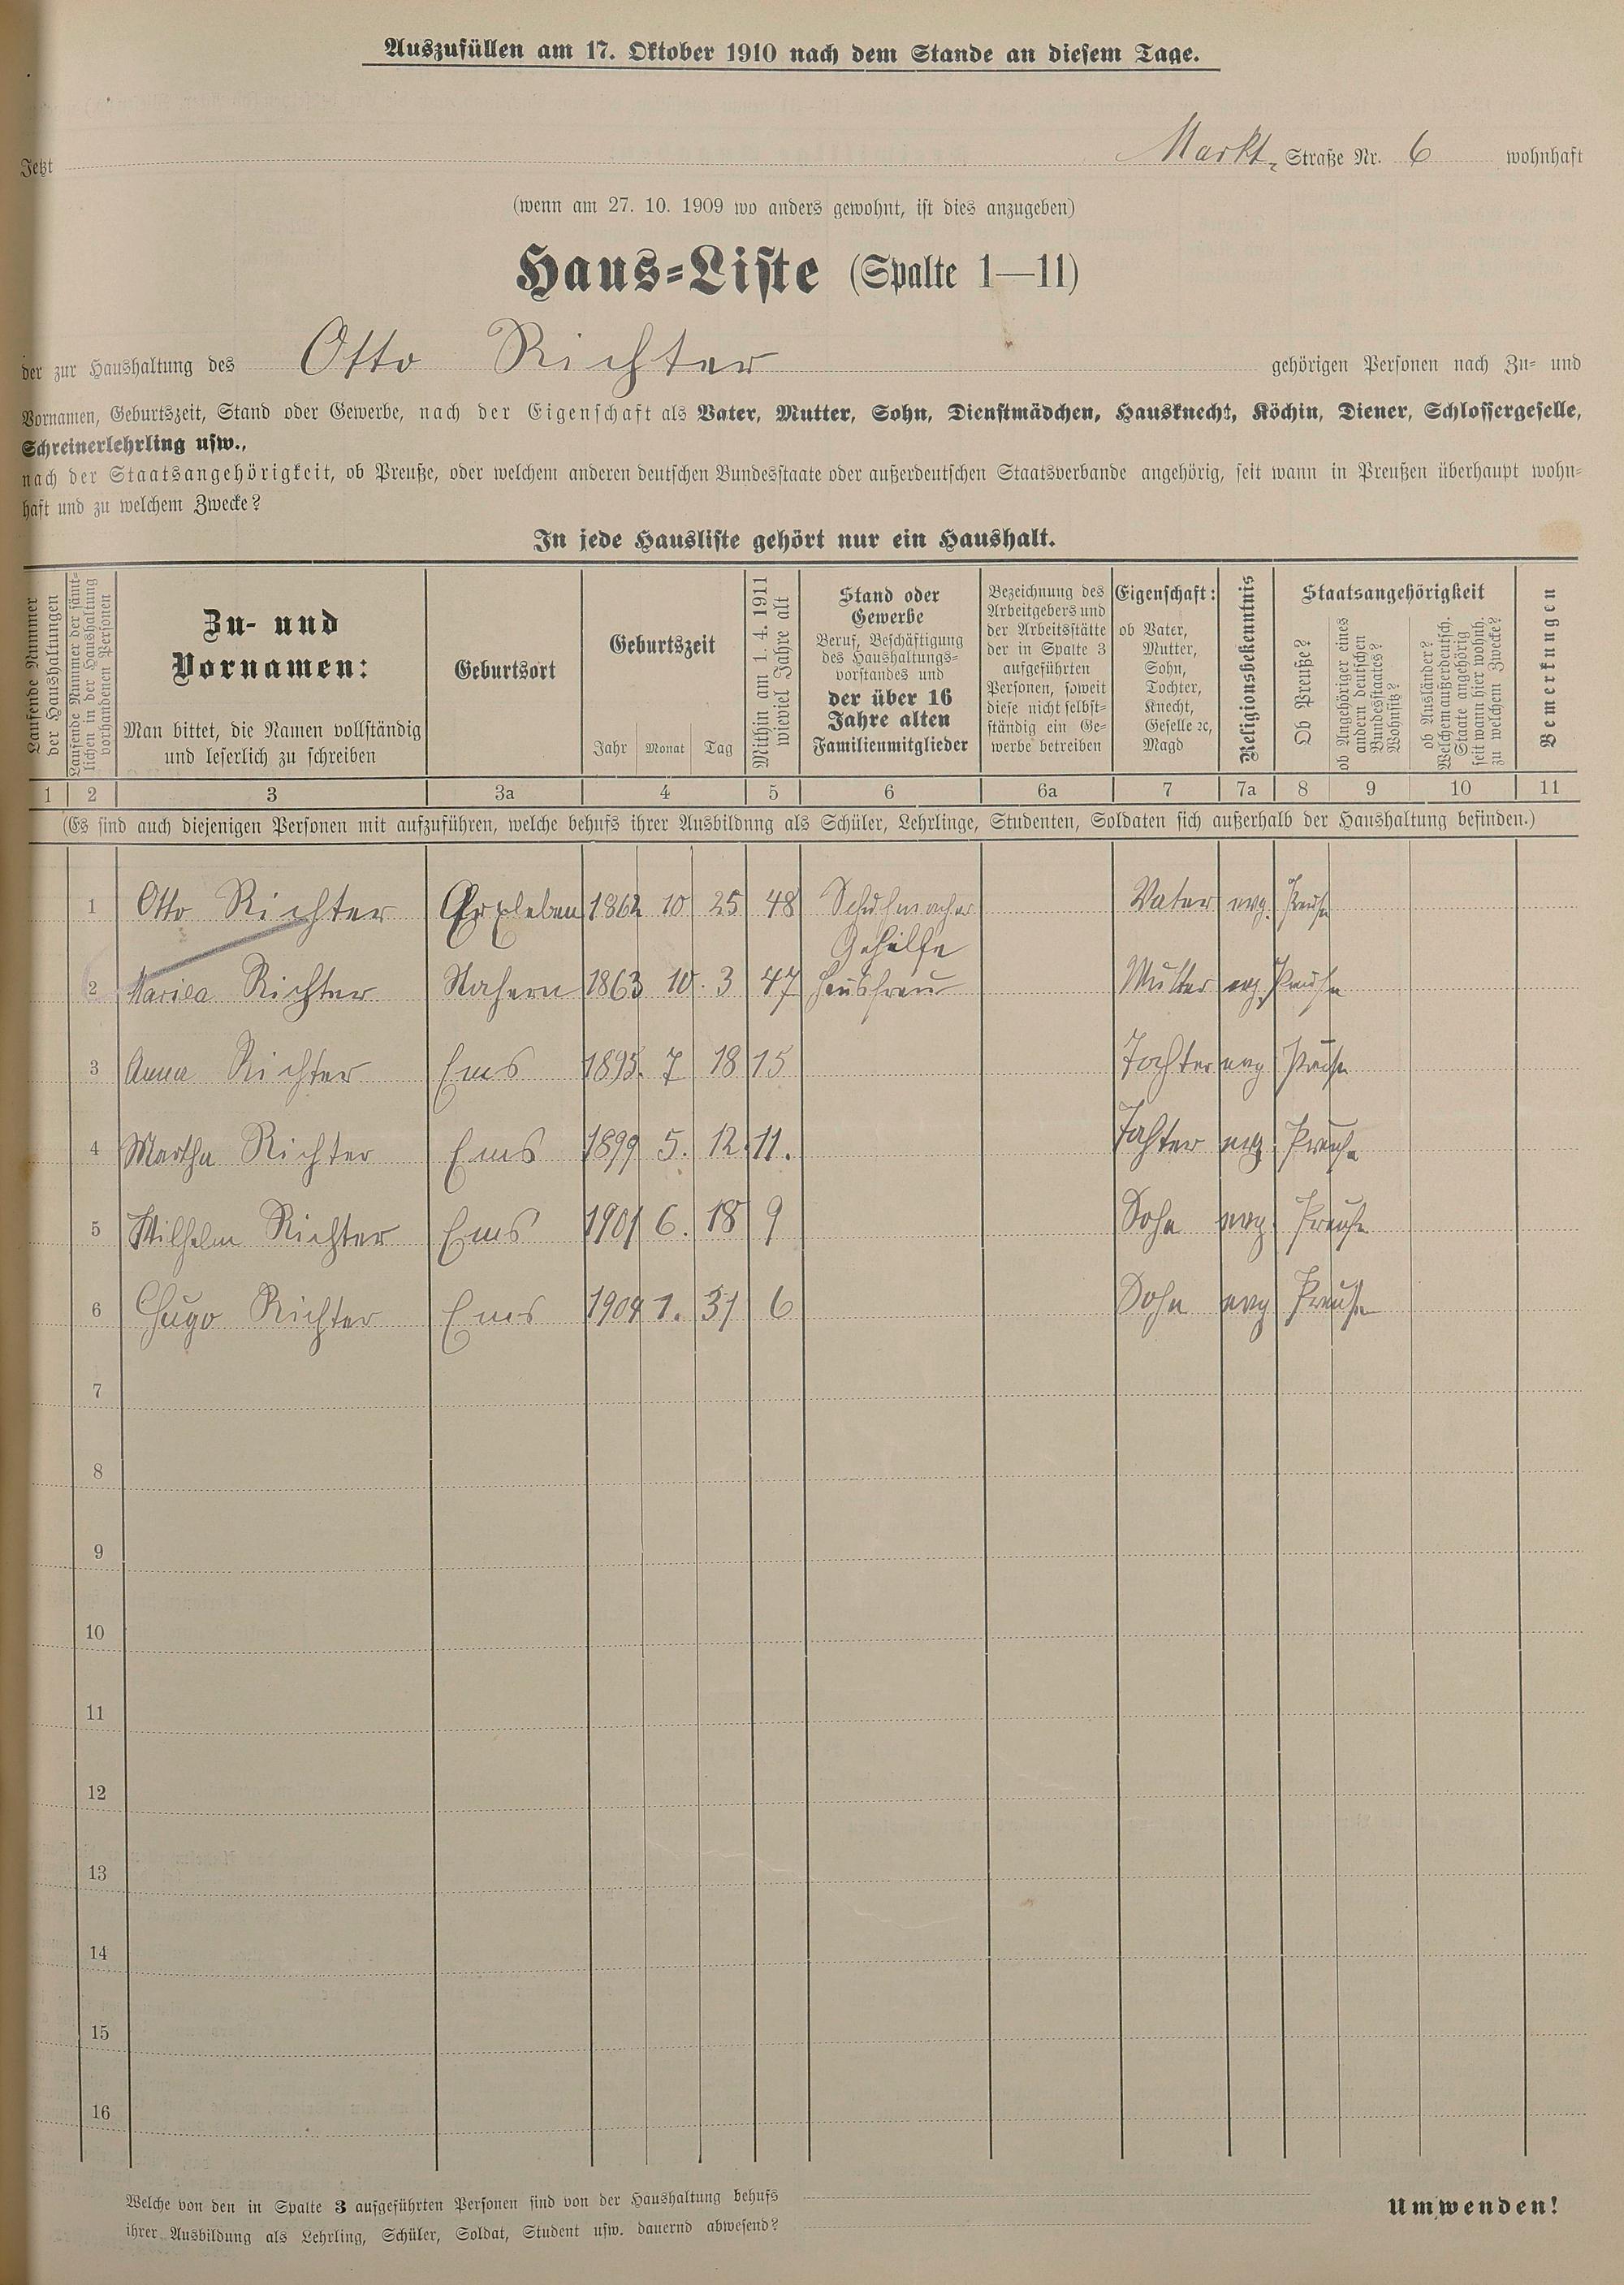 Auszufüllen am 17. Oktober 1910 nach dem Stande an diesem Tage.
Jetzt Markt- Straße Nr. 6 wohnhaft
(wenn am 27. 10. 1909 wo anders gewohnt, ist dies anzugeben)
Haus-Liste (Spalte 1—11)
der zur Haushaltung des Otto Richter gehörigen Personen nach Zu- und
Vornamen, Geburtszeit, Stand oder Gewerbe, nach der Eigenschaft als Vater, Mutter, Sohn, Dienstmädchen, Hausknecht, Köchin, Diener, Schlossergeselle,
Schreinerlehrling usw.,
nach der Staatsangehörigkeit, ob Preuße, oder welchem anderen deutschen Bundesstaate oder außerdeutschen Staatsverbande angehörig, seit wann in Preußen überhaupt wohn-
haft und zu welchem Zwecke?
In jede Hausliste gehört nur ein Haushalt.
Laufende Nummer
der Haushaltungen
Laufende Nummer der sämt-
lichen in der Haushaltung
vorhandenen Personen
Zu- und
Vornamen:
Man bittet, die Namen vollständig
und leserlich zu schreiben
Geburtsort
Geburtszeit
Jahr Monat Tag
Mithin am 1. 4. 1911
wieviel Jahre alt
Stand oder
Gewerbe
Beruf, Beschäftigung
des Haushaltungs-
vorstandes und
der über 16
Jahre alten
Familienmitglieder
Bezeichnung des
Arbeitgebers und
der Arbeitsstätte
der in Spalte 3
aufgeführten
Personen, soweit
diese nicht selbst-
ständig ein Ge-
werbe betreiben
Eigenschaft:
ob Vater,
Mutter,
Sohn,
Tochter,
Knecht,
Geselle ꝛc,
Magd
Religionsbekenntnis
Staatsangehörigkeit
Ob Preuße?
ob Angehöriger eines
andern deutschen
Bundesstaates?
Wohnsitz?
ob Ausländer?
Welchem außerdeutsch.
Staate angehörig
seit wann hier wohnh.
zu welchem Zwecke?
Bemerkungen
1 2 3 3a 4 5 6 6a 7 7a 8 9 10 11
(Es sind auch diejenigen Personen mit aufzuführen, welche behufs ihrer Ausbildung als Schüler, Lehrlinge, Studenten, Soldaten sich außerhalb der Haushaltung befinden.)
1 Otto Richter Erxleben 1862 10 25 48 Schuhmacher Vater evg. Preuße
Gehilfe
2 Richter 1863 10. 3 47 Hausfrau Mutter evg. Preuße
3 Anna Richter Ems 1895. 7 18 15 Tochter evg Preuße
4 Martha Richter Ems 1899 5. 12. 11. Tochter evg. Preuße
5 Wilhelm Richter Ems 1901 6. 18 9 Sohn evg. Preuße
6 Hugo Richter Ems 1904 1. 31 6 Sohn evg Preuße
7
8
9
10
11
12
13
14
15
16
Welche von den in Spalte 3 aufgeführten Personen sind von der Haushaltung behufs
ihrer Ausbildung als Lehrling, Schüler, Soldat, Student usw. dauernd abwesend?
Umwenden!